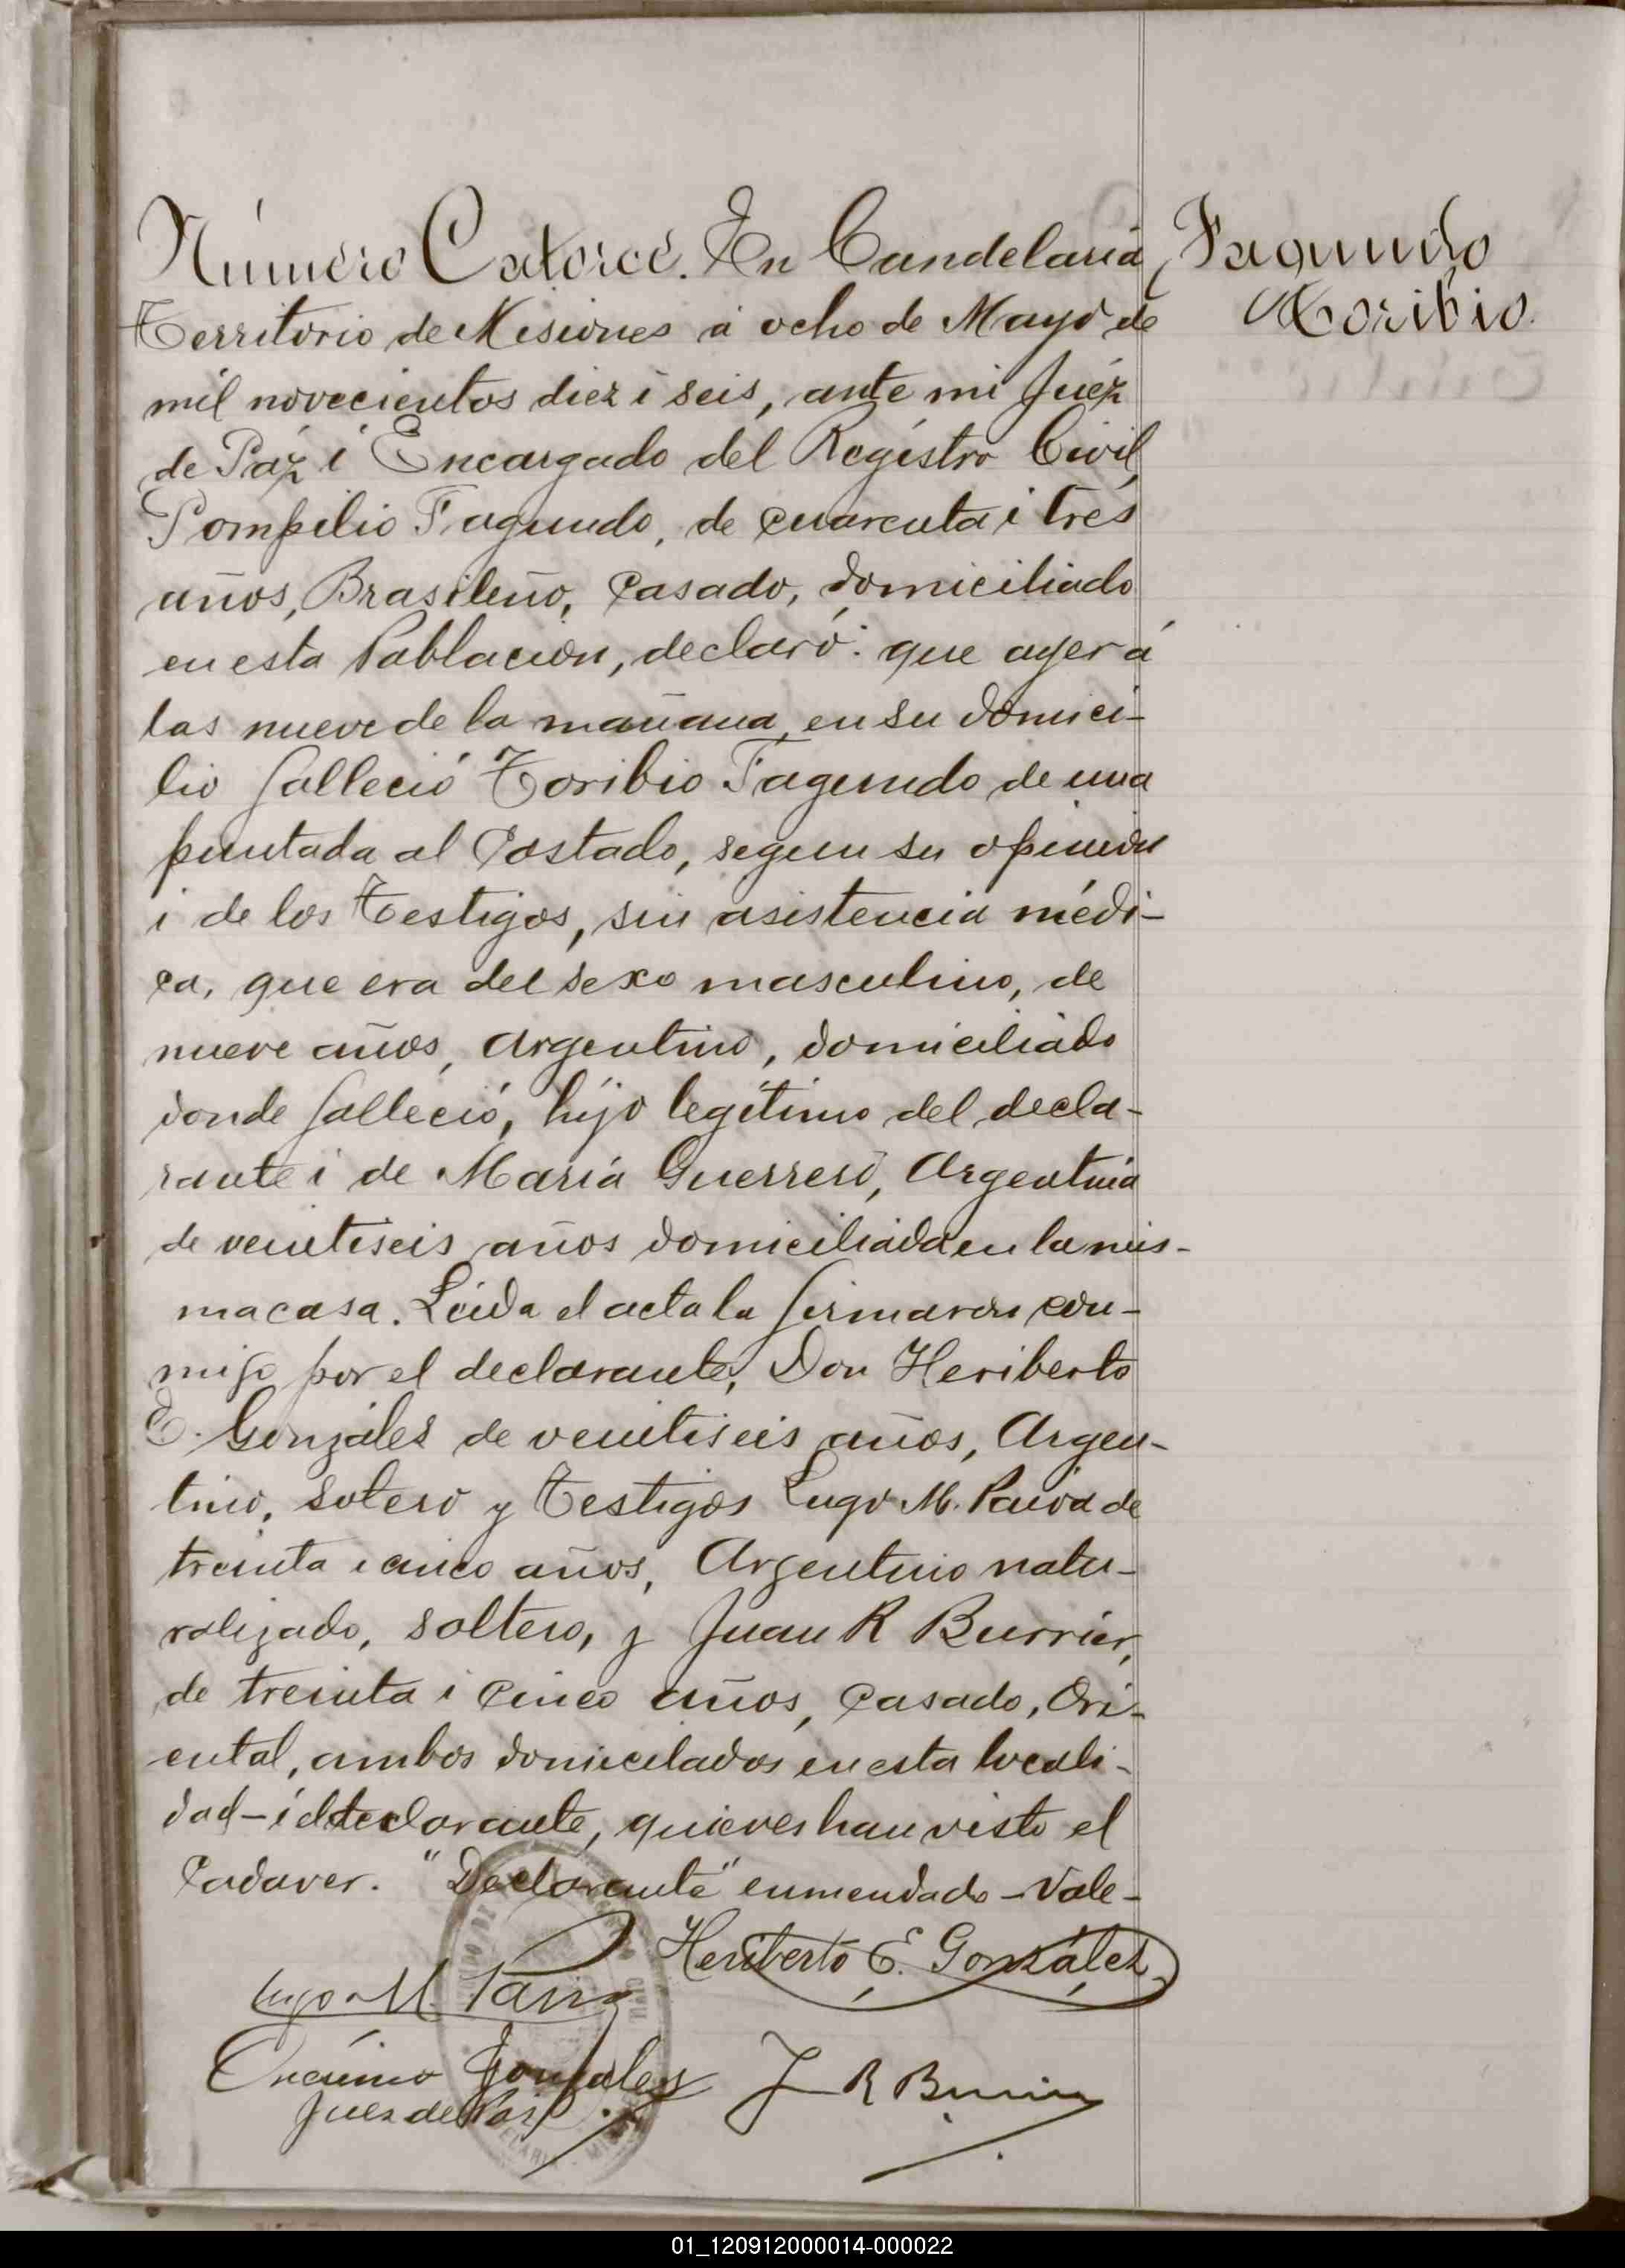 Número Catorce. En Candelaria
Fagundo
Toribio.
Territorio de Misiones á ocho de Mayo de
mil novecientos diez i seis, ante mi Juez
de Páz i Encargado del Registro Civil,
Pompilio Fagundo, de cuarenta i trés
años, Brasileño, Casado, domiciliado
en esta Poblacion, declaró: que ayer á
las nueve de la mañana, en su domici-
lio falleció Toribio Fagundo de una
puntada al Costado, segun su opinion
i de los Testigos, sin asistencia médi-
ca, que era del sexo masculino, de
nueve años, Argentino, domiciliado
donde falleció, hijo legítimo del decla-
rante i de María Guerrero, Argentina
de veintiseis años domiciliada en la mis-
ma casa. Leída el acta la firmaron con-
migo por el declarante, Don Heriberto
E. Gonzáles de veintiseis años, Argen-
tino, soltero y Testigos Lugo M. Paiva de
treinta i cinco años, Argentino natu-
ralizado, soltero, y Juan R Burrier,
de treinta i cinco años, Casado, Ori-
ental, ambos domicilados en esta locali-
dad - i declarante, quienes han visto el
Cadaver. "Declarante" enmendado - Vale -
Heriberto E. Gonzáles
Lugo M. Paiva
Onésimo Gonzales
Juez de Paz
J R Burrier
01_120912000014-000022